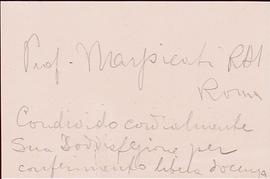 Prof. Marpicati RAI
Roma
Condivido cordialmente
Sua Soddisfazione per
conferimento libera docenza